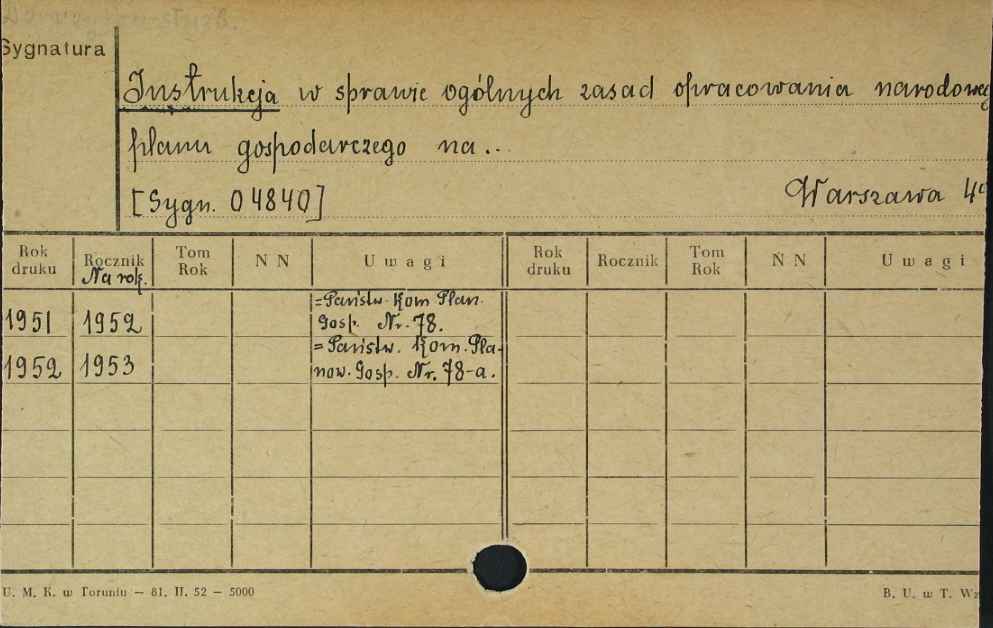 Sygnatura
Instrukcja w sprawie ogólnych zasad opracowania narodoweg
planu gospodarczego na..
[Sygn. 04840]
Warszawa 4°
Rok druku Rocznik Tom Rok N N Uwagi Rok druku Rocznik Tom Rok N N Uwagi
Na rok.
1951 1952 =Państw. Kom Plan.
Gosp. Nr. 78.
1952 1953 = Państw. Kom. Pla-
now. Gosp. Nr. 78-a.
U. M. K. w Toruniu — 81. II. 52 — 5000
B. U. w T. Wz